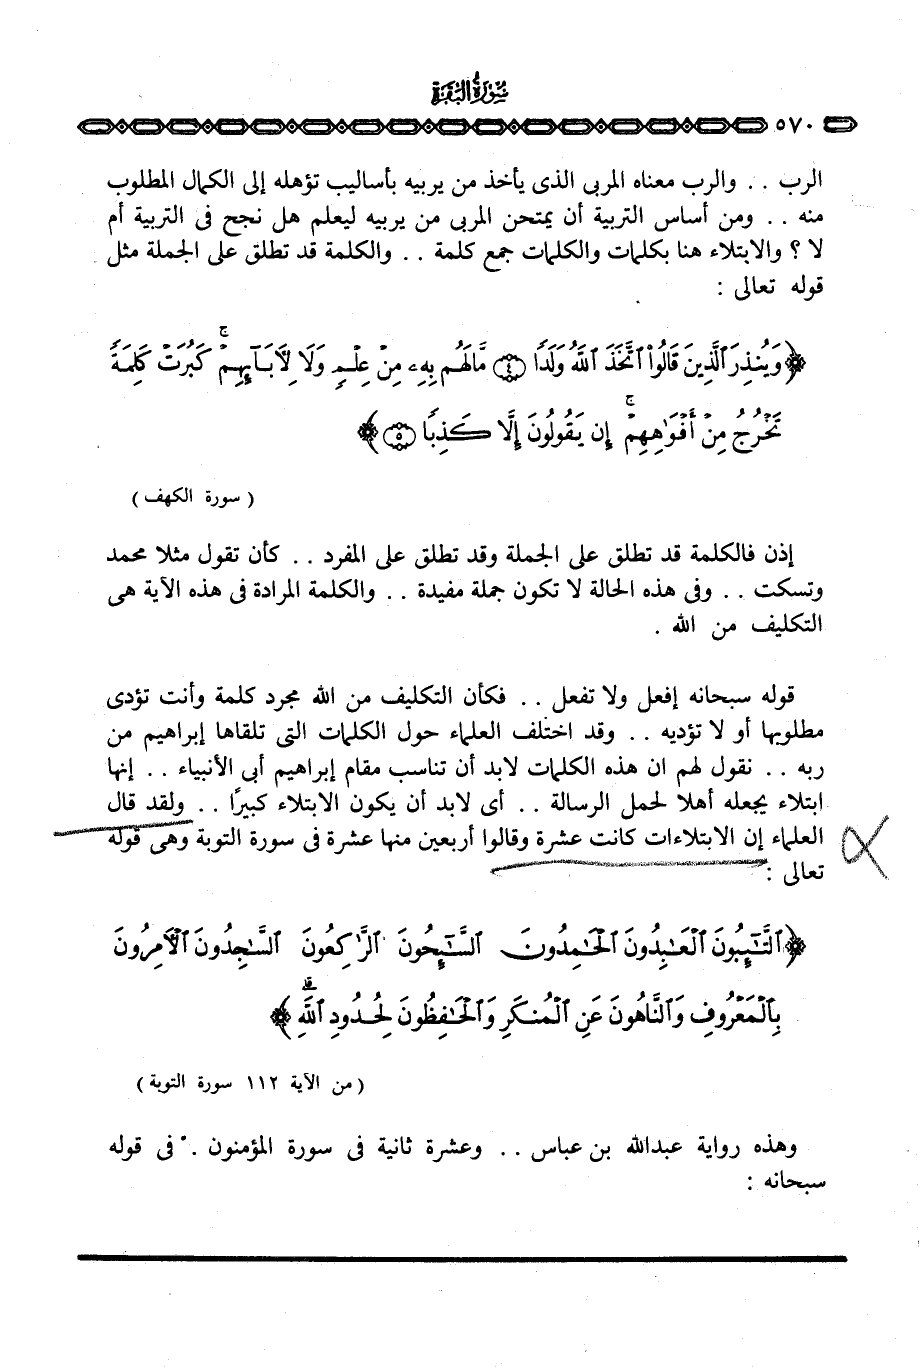 سورة البقرة
٥٧٠
الرب . . والرب معناه المربى الذى يأخذ من يربيه بأساليب تؤهله إلى الكمال المطلوب
منه . . ومن أساس التربية أن يمتحن المربى من يربيه ليعلم هل نجح فى التربية أم
لا ؟ والابتلاء هنا بكلمات والكلمات جمع كلمة . . والكلمة قد تطلق على الجملة مثل
قوله تعالى :
﴿ وَيُنذِرَ ٱلَّذِينَ قَالُوا۟ ٱتَّخَذَ ٱللَّهُ وَلَدًا ﴿٤﴾ مَّالَهُم بِهِۦ مِنْ عِلْمٍ وَلَا لِـَٔابَآئِهِمْ ۚ كَبُرَتْ كَلِمَةً
تَخْرُجُ مِنْ أَفْوَٰهِهِمْ ۚ إِن يَقُولُونَ إِلَّا كَذِبًا ﴿٥﴾ ﴾
( سورة الكهف )
إذن فالكلمة قد تطلق على الجملة وقد تطلق على المفرد . . كأن تقول مثلا محمد
وتسكت . . وفى هذه الحالة لا تكون جملة مفيدة . . والكلمة المرادة فى هذه الآية هى
التكليف من الله .
قوله سبحانه إفعل ولا تفعل . . فكأن التكليف من الله مجرد كلمة وأنت تؤدى
مطلوبها أو لا تؤديه . . وقد اختلف العلماء حول الكلمات التى تلقاها إبراهيم من
ربه . . نقول لهم ان هذه الكلمات لابد أن تناسب مقام إبراهيم أبى الأنبياء . . إنها
ابتلاء يجعله أهلا لحمل الرسالة . . أى لابد أن يكون الابتلاء كبيرًا . . ولقد قال
العلماء إن الابتلاءات كانت عشرة وقالوا أربعين منها عشرة فى سورة التوبة وهى قوله
تعالى :
﴿ ٱلتَّـٰٓئِبُونَ ٱلْعَـٰبِدُونَ ٱلْحَـٰمِدُونَ ٱلسَّـٰٓئِحُونَ ٱلرَّٰكِعُونَ ٱلسَّـٰجِدُونَ ٱلْـَٔامِرُونَ
بِٱلْمَعْرُوفِ وَٱلنَّاهُونَ عَنِ ٱلْمُنكَرِ وَٱلْحَـٰفِظُونَ لِحُدُودِ ٱللَّهِ ۗ ﴾
( من الآية ١١٢ سورة التوبة )
وهذه رواية عبدالله بن عباس . . وعشرة ثانية فى سورة المؤمنون . . فى قوله
سبحانه :